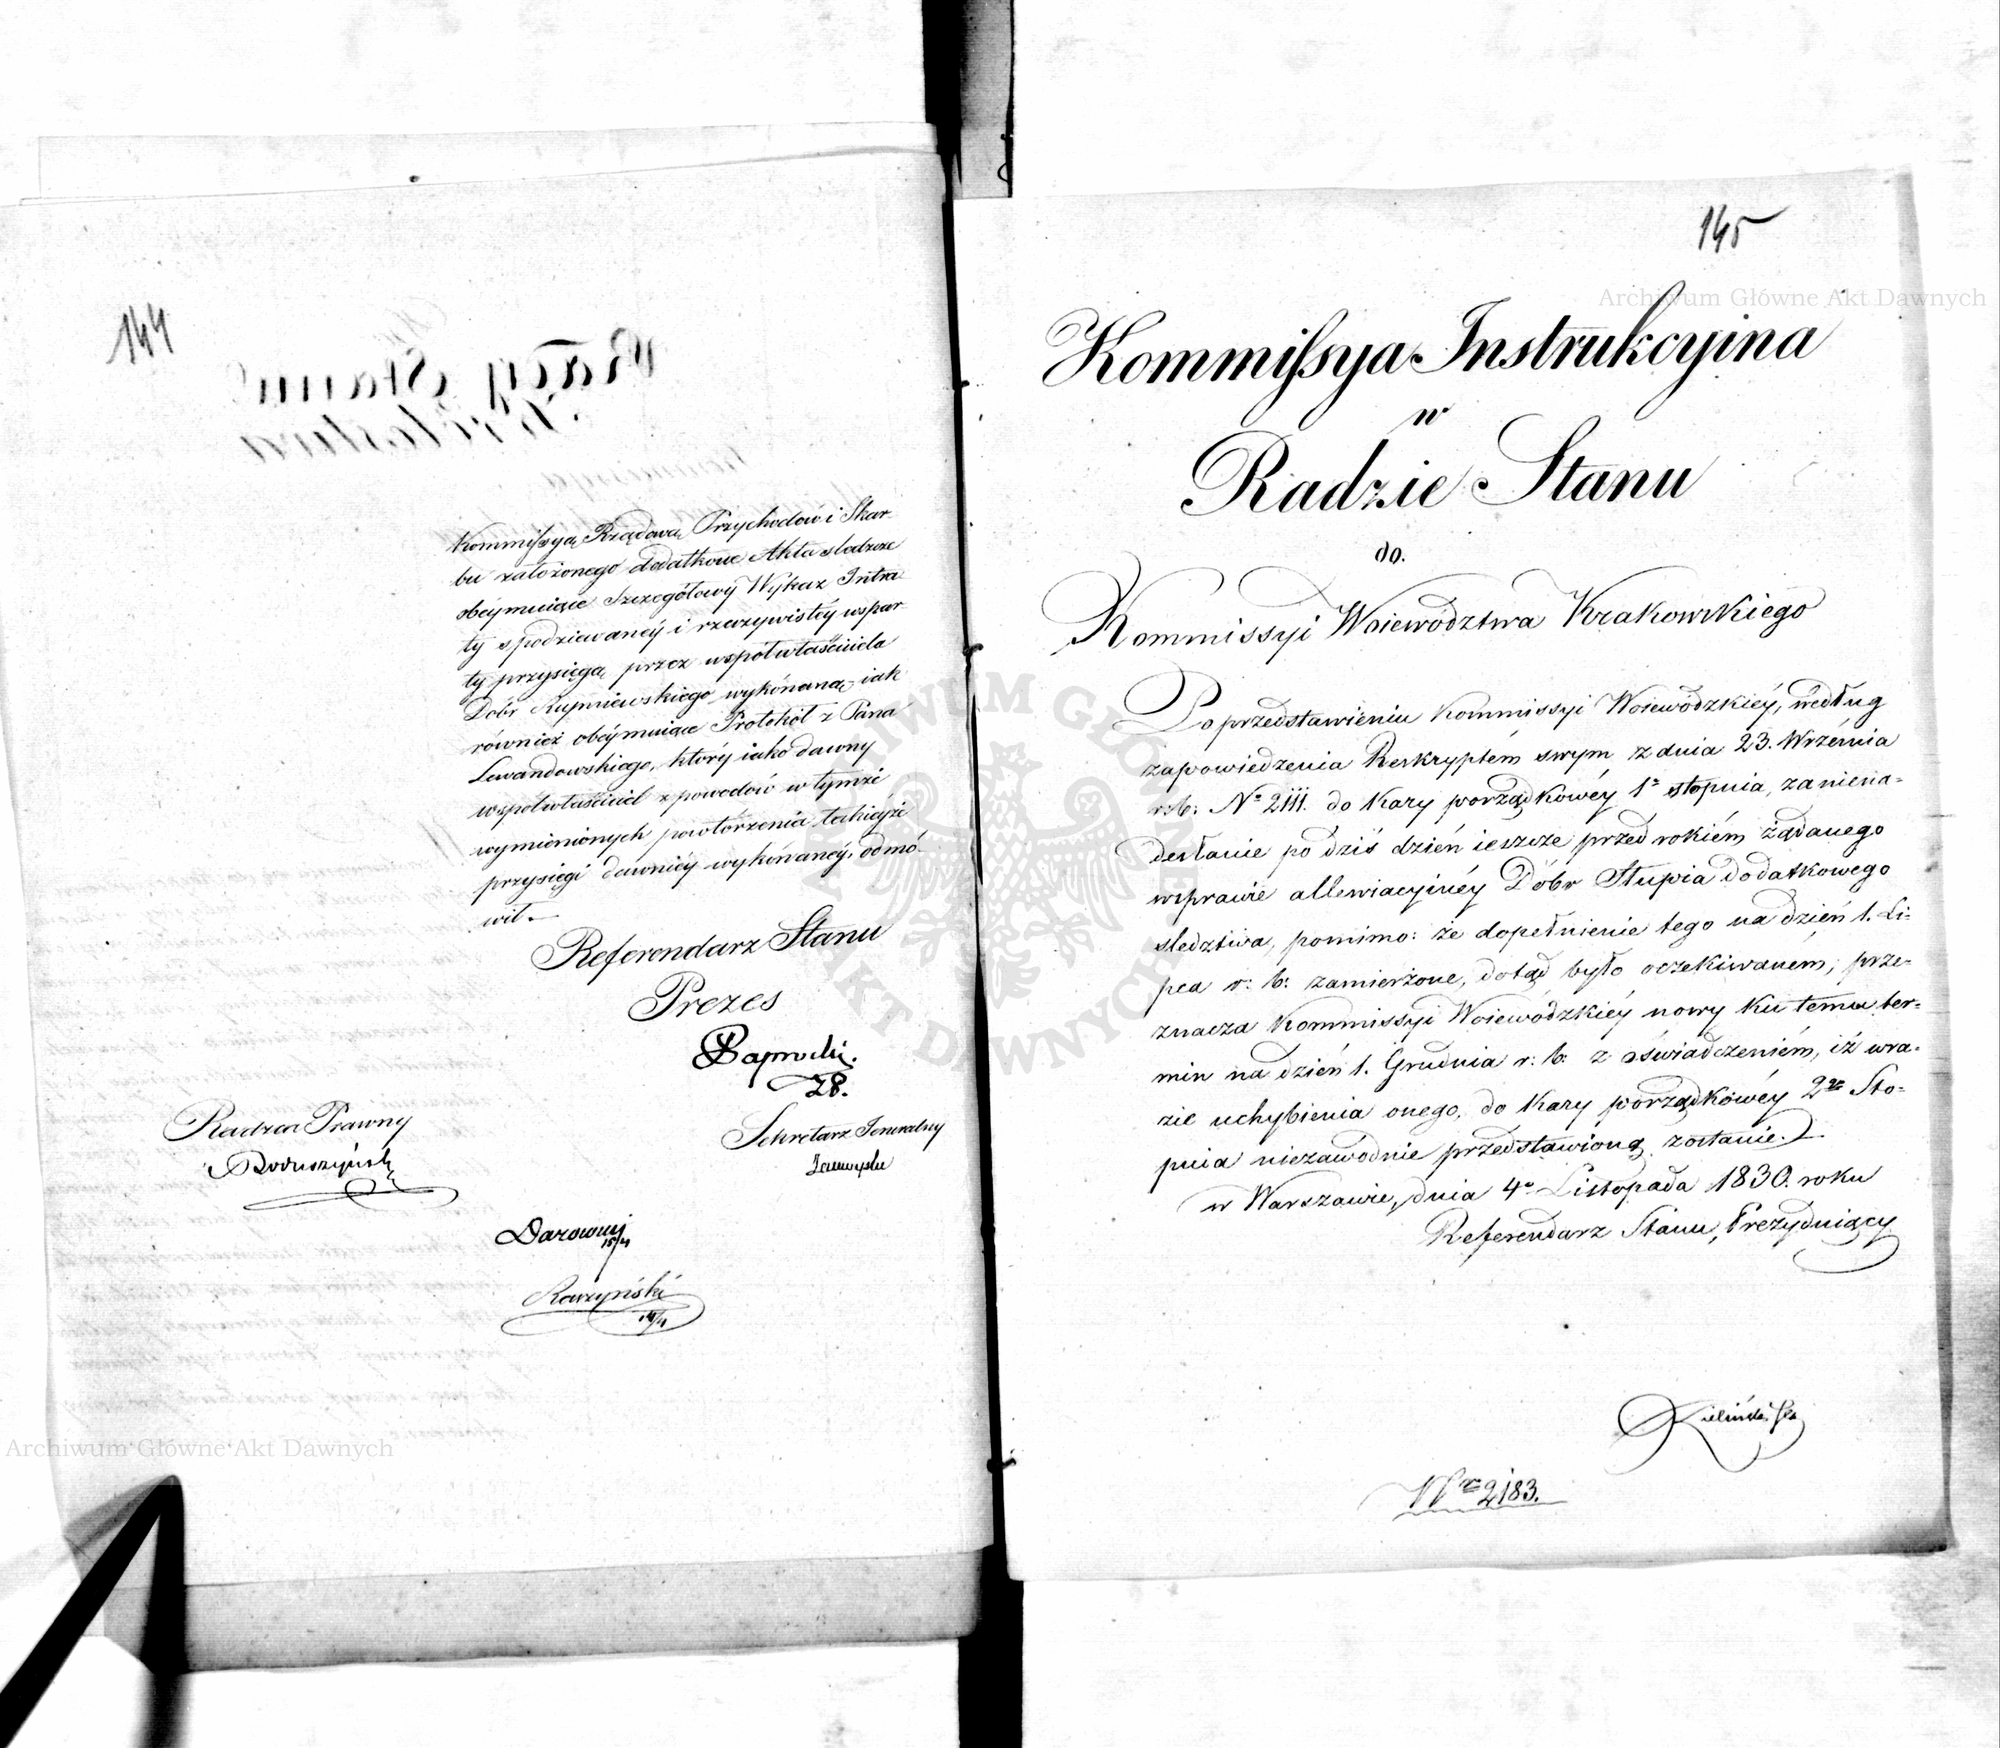 144
Kommissyą Rządową Przychodów i Skar-
bu założonego dodatkowe Akta śledcze
obeymuiące Szczegółowy Wykaz Intra-
ty spodziewaney i rzeczywistéy wspar-
ty przysięgą przez współwłaściciela
Dóbr wykonaną, iak
również obeymuiące Protokół z Pana
Lewandowskiego, który iako dawny
współwłaściciel z powodów w tymże
wymienionych powtórzenia takieyże
przysięgi dawniéy wykonanéy, odmó-
wił.
Referendarz Stanu
Prezes
Sekretarz Jeneralny
Radzca Prawny
145
Kommissya Instrukcyina
w
Radzie Stanu
do.
Kommissyi Woiewództwa Krakowskiego
Po przedstawieniu Kommissyi Woiewódzkiéy, według
zapowiedzenia Reskryptem swym z dnia 23. Września
r. b. No 2111. do Kary porządkowéy 1o stopnia, za niena-
desłanie po dziś dzień ieszcze przed rokiém żądanego
w sprawie allewiacyinéy Dóbr Słupia dodatkowego
śledztwa, pomimo: że dopełnienie tego na dzień 1. Li-
pca r: b: zamierzone, dotąd było oczekiwaném; prze-
znacza Kommissyi Woiewódzkiéy nowy ku temu ter-
min na dzień 1. Grudnia r: b: z oświadczeniém, iż w ra-
zie uchybienia onego, do Kary porządkowéy 2go Sto-
pnia niezawodnie przedstawioną zostanie.
w Warszawie, dnia 4o Listopada 1830. roku
Referendarz Stanu, Prezyduiący
Nro 2183.
Archiwum Główne Akt Dawnych
Archiwum Główne Akt Dawnych
ARCHIWUM GŁÓWNE AKT DAWNYCH